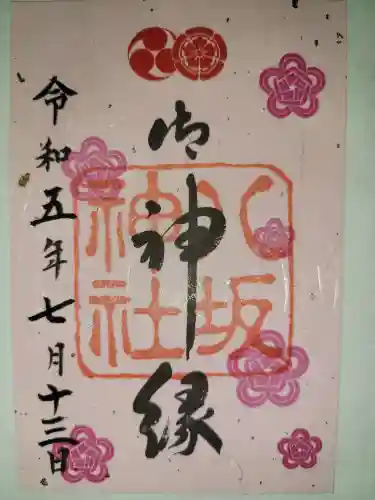 御神縁
八坂
神社
令和五年七月十三日